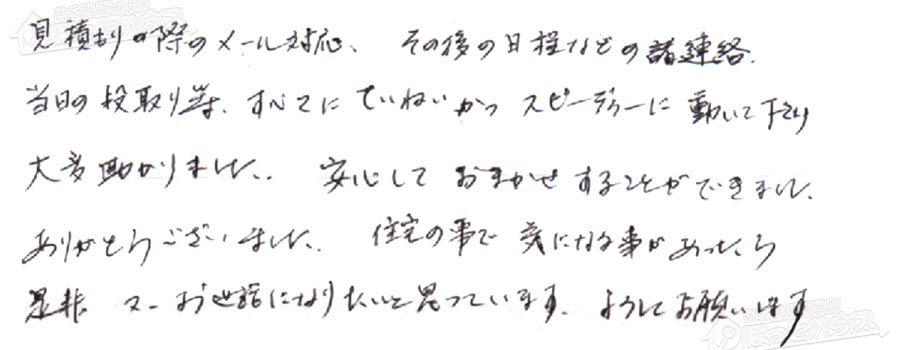 見積もりの際のメール対応、その後の日程などの諸連絡、
当日の段取り等、すべてにていねいかつスピーディーに動いて下さり
大変助かりました。安心しておまかせすることができました。
ありがとうございました。住宅の事で気になる事があったら
是非 又 お世話になりたいと思っています。よろしくお願いします